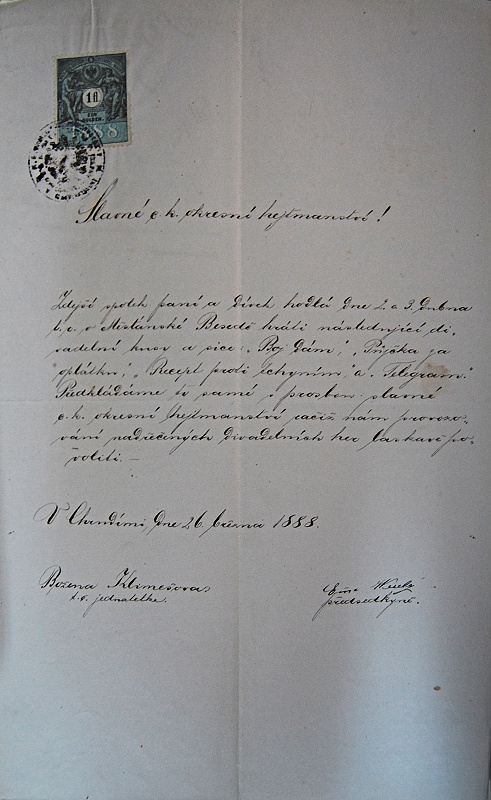 1 fl
EIN
GULDEN
1888
Slavné c.k. okresní hejtmanství!
Zdejší spolek paní a dívek hodlá dne 2. a 3. dubna
t. r. v Měšťanské Besedě hráti následující di,
vadelní kusy a sice: „Boj dám", „Půjčka za
oplátku", „Recept proti tchyním" a „Telegram".
Předkládáme to samé s prosbou: slavné
c.k. okresní hejtmanství račiž nám provozo„
vání nadřečených divadelních her laskavě po„
voliti. —
V Chrudimi dne 26. března 1888.
Božena Klimešova
t. č. jednatelka.
Ema Veselá
předsedkyně.